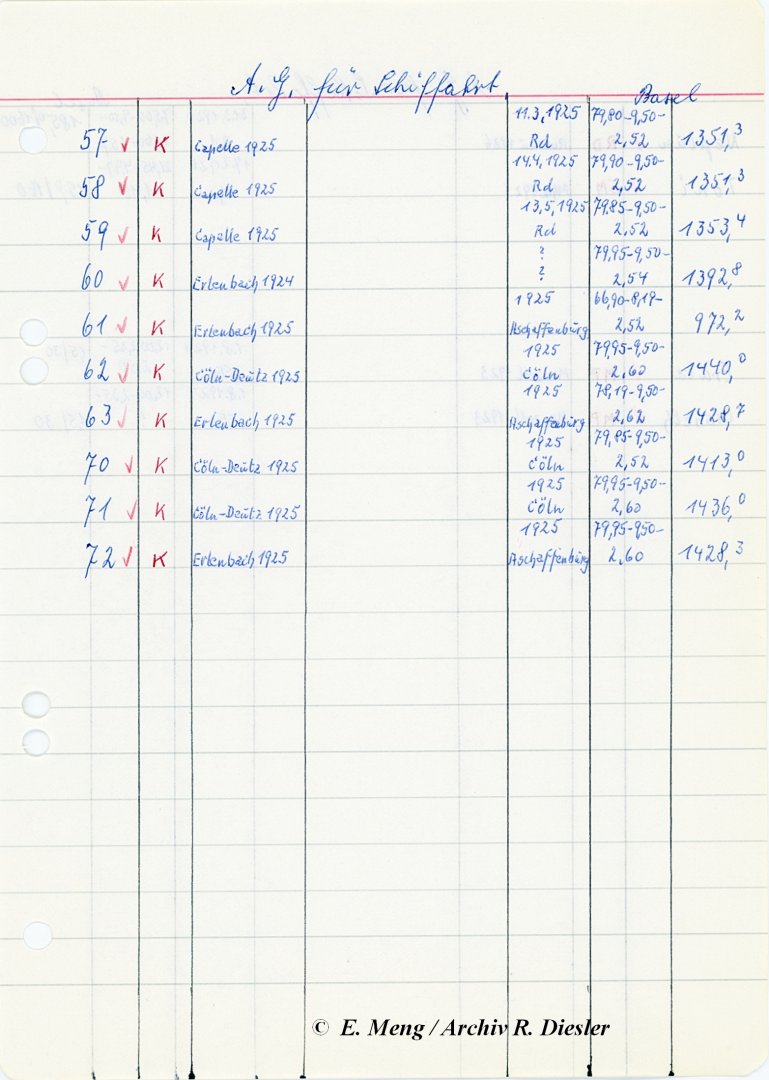 A.G. für Schiffahrt Basel
11.3.1925 79,80-9,50-
57 ✓ K Capelle 1925 Rd 2,52 1351,3
14.4.1925 79,90-9,50-
58 ✓ K Capelle 1925 Rd 2,52 1351,3
13.5.1925 79,85-9,50-
59 ✓ K Capelle 1925 Rd 2,52 1353,4
? 79,95-9,50-
60 ✓ K Erlenbach 1924 ? 2,54 1392,8
1925 66,90-8,19-
61 ✓ K Erlenbach 1925 Aschaffenburg 2,52 972,2
1925 79,95-9,50-
62 ✓ K Cöln-Deutz 1925 Cöln 2,60 1440,0
1925 78,19-9,50-
63 ✓ K Erlenbach 1925 Aschaffenburg 2,62 1428,7
1925 79,85-9,50-
70 ✓ K Cöln-Deutz 1925 Cöln 2,52 1413,0
1925 79,95-9,50-
71 ✓ K Cöln-Deutz 1925 Cöln 2,60 1436,0
1925 79,95-9,50-
72 ✓ K Erlenbach 1925 Aschaffenburg 2,60 1428,3
© E. Meng / Archiv R. Diesler